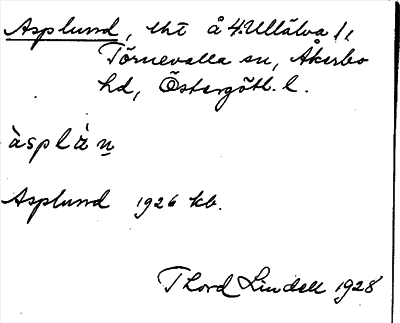 Asplund, lht å 4 Ullälva 1/1
Törnevalla sn, Åkerbo
hd, Östergötl. l.
àsplàn
Asplund 1926 kb.
Thord Lindell 1928